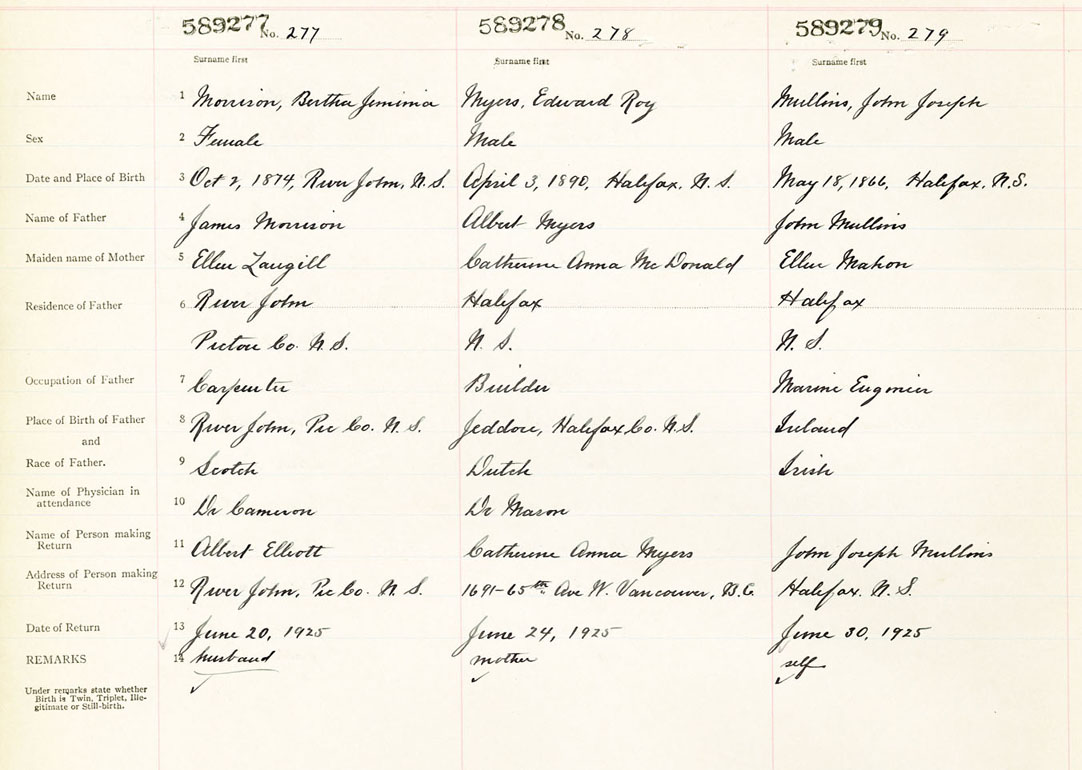 589277 No. 277 589278 No. 278 589279 No. 279
Surname first Surname first Surname first
Name 1 Morrison, Bertha Jemimia Myers, Edward Roy Mullins, John Joseph
Sex 2 Female Male Male
Date and Place of Birth 3 Oct 2, 1874, River John, N.S. April 3, 1890, Halifax, N.S. May 18, 1866, Halifax, N.S.
Name of Father 4 James Morrison Albert Myers John Mullins
Maiden name of Mother 5 Ellen Langill Catherine Anna McDonald Ellen Mahon
Residence of Father 6 River John Halifax Halifax
Pictou Co. N.S. N.S. N.S.
Occupation of Father 7 Carpenter Builder Marine Engineer
Place of Birth of Father 8 River John, Pic Co. N.S. Jeddore, Halifax Co. N.S. Ireland
and
Race of Father. 9 Scotch Dutch Irish
Name of Physician in
attendance 10 Dr Cameron Dr
Name of Person making
Return 11 Albert Elliott Catherine Anna Myers John Joseph Mullins
Address of Person making
Return 12 River John, Pic Co. N.S. 1691-65th Ave W. Vancouver, B.C. Halifax. N.S.
Date of Return 13 June 20, 1925 June 24, 1925 June 30, 1925
REMARKS 14 husband mother self
Under remarks state whether
Birth is Twin, Triplet, Ille-
gitimate or Still-birth.